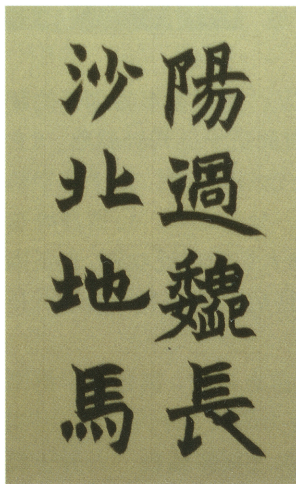 陽過魏長
沙北地馬